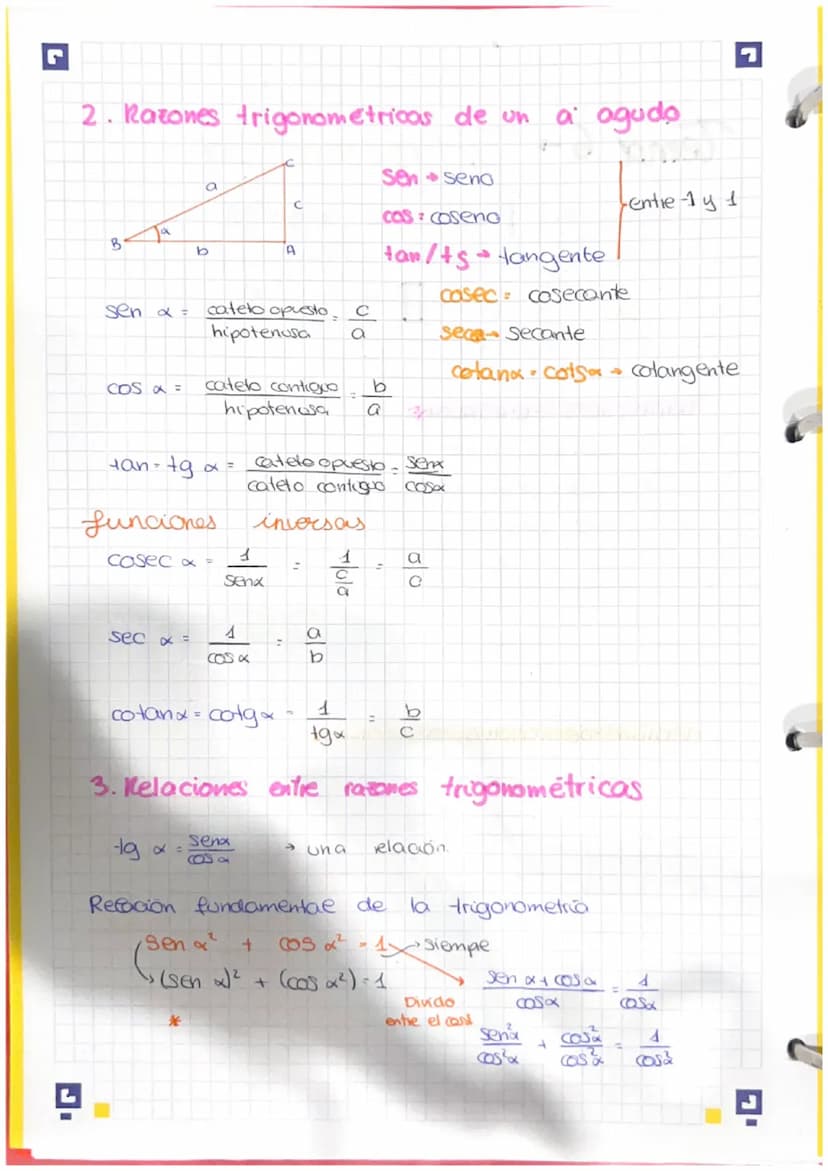 2. Razones trigonométricas de un a agudo
C
a
c
B
α
b
A
sen → seno
cos : coseno
tan/tg → tangente
entre -1 y 1
cosec = cosecante
secα → secante
cotanα = cotgα → cotangente
sen α = cateto opuesto / hipotenusa = c / a
cos α = cateto contiguo / hipotenusa = b / a
tan = tg α = cateto opuesto / cateto contiguo = senα / cosα
funciones inversas
cosec α = 1 / senα = 1 / (c / a) = a / c
sec α = 1 / cos α = a / b
cotanα = cotgα = 1 / tgα = b / c
3. Relaciones entre razones trigonométricas
tg α = senα / cos α → una relación.
Relación fundamental de la trigonometría
sen α² + cos α² = 1 → siempe
(sen α)² + (cos α²) = 1
*
Divido
entre el cosα
sen α + cos α / cosα = 1 / cosα
sen²α / cos²α + cos²α / cos²α = 1 / cos²α